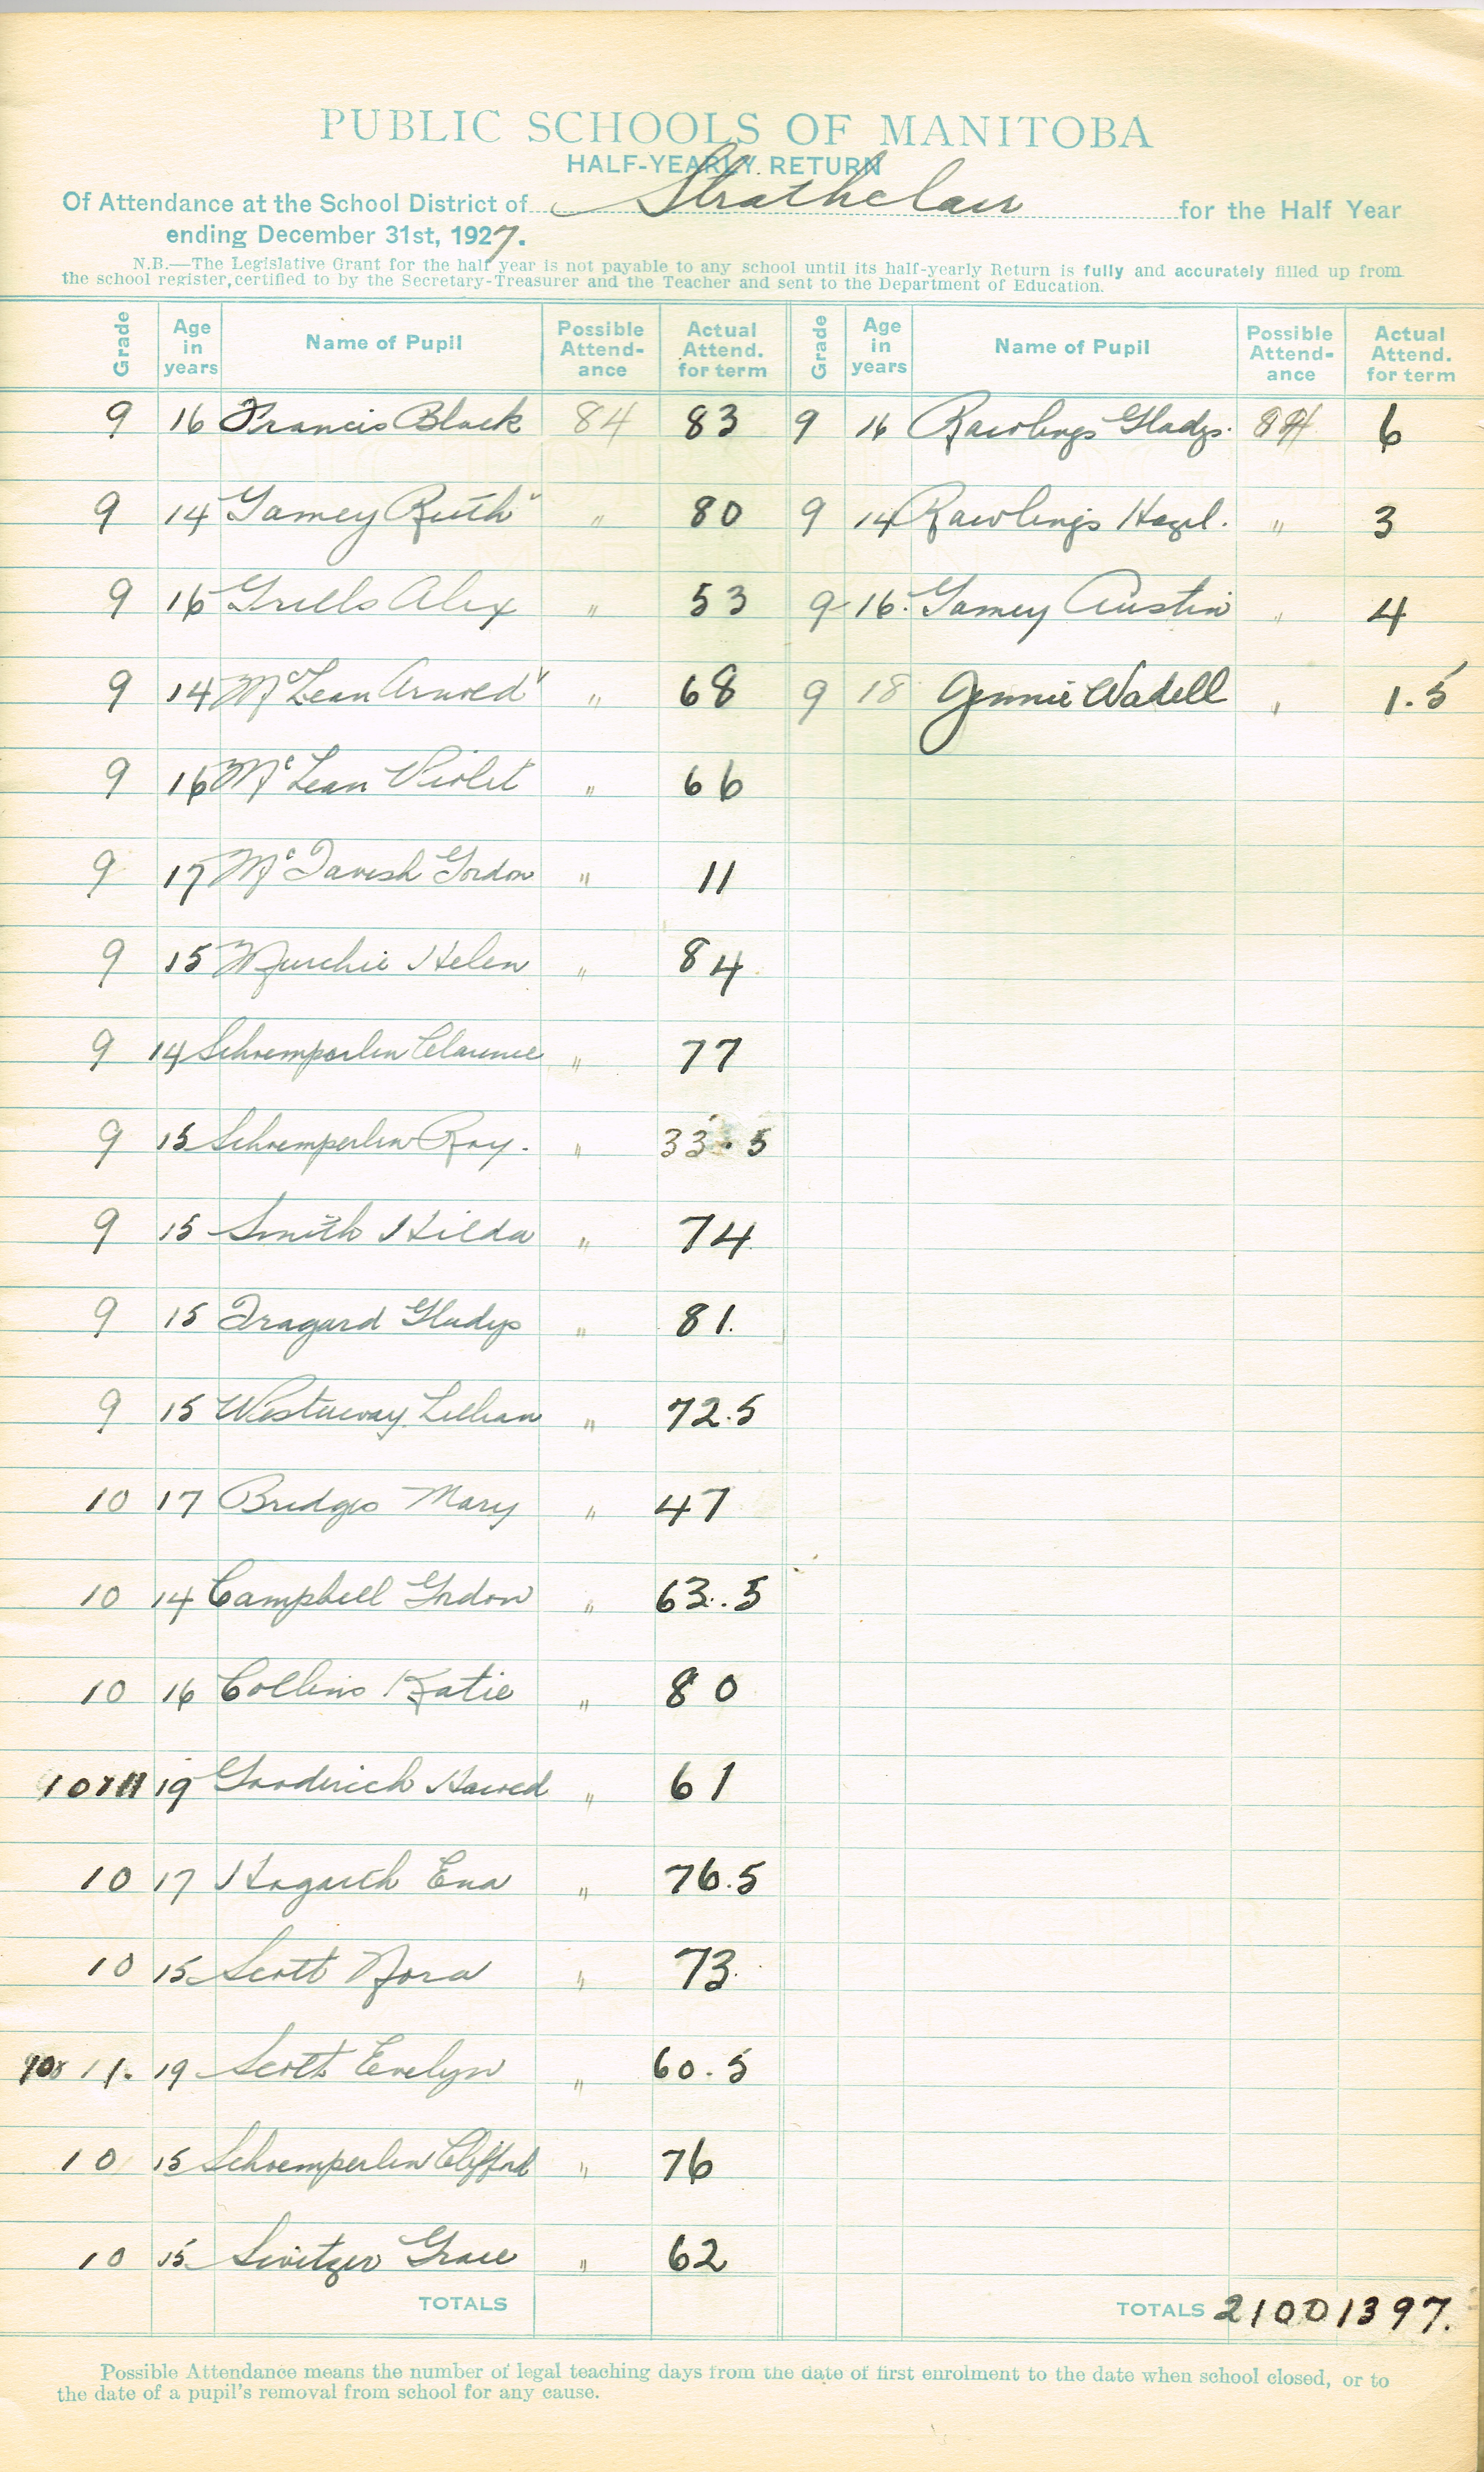 PUBLIC SCHOOLS OF MANITOBA
HALF-YEARLY RETURN
Of Attendance at the School District of Strathclair for the Half Year
ending December 31st, 1927.
N.B.—The Legislative Grant for the half year is not payable to any school until its half-yearly Return is fully and accurately filled up from
the school register, certified to by the Secretary-Treasurer and the Teacher and sent to the Department of Education.
Grade Age in years Name of Pupil Possible Attend-ance Actual Attend. for term Grade Age in years Name of Pupil Possible Attend-ance Actual Attend. for term
9 16 Francis Black 84 83 9 16 Rawlings Gladys. 84 6
9 14 Gamey Ruth " 80 9 14 Rawlings Hazel. " 3
9 16 Grills Alex " 53 9 16. Gamey Austin " 4
9 14 McLean Arnold " 68 9 18 Jennie Wadell " 1.5
9 16 McLean Violet " 66
9 17 McTavish Gordon " 11
9 15 Murchie Helen " 84
9 14 Schoemperlen Clarence " 77
9 15 Schoemperlen Roy. " 33.5
9 15 Smith Hilda " 74
9 15 Tragard Gladys " 81.
9 15 Westaway Lillian " 72.5
10 17 Bridges Mary " 47
10 14 Campbell Gordon " 63.5
10 16 Collins Katie " 80
10 & 11 19 Gooderich Harold " 61
10 17 Hogarth Ena " 76.5
10 15 Scott Nora " 73.
10 & 11. 19 Scott Evelyn " 60.5
10 15 Schoemperlen Clifford " 76
10 15 Switzer Grace " 62
TOTALS TOTALS 2100 1397.
Possible Attendance means the number of legal teaching days from the date of first enrolment to the date when school closed, or to
the date of a pupil's removal from school for any cause.